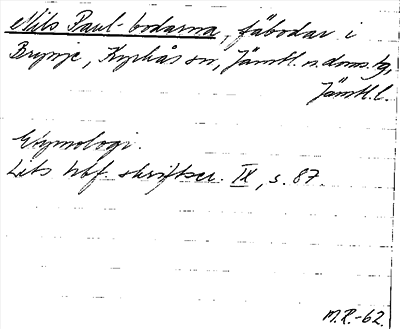 Nils Paul-bodarna, fäbodar i
Brynje, Kyrkås sn, Jämtl. n. doms. tg,
Jämtl. l.
Etymologi.
hbf. skriftser. IX, s. 87.
M.R.-62.